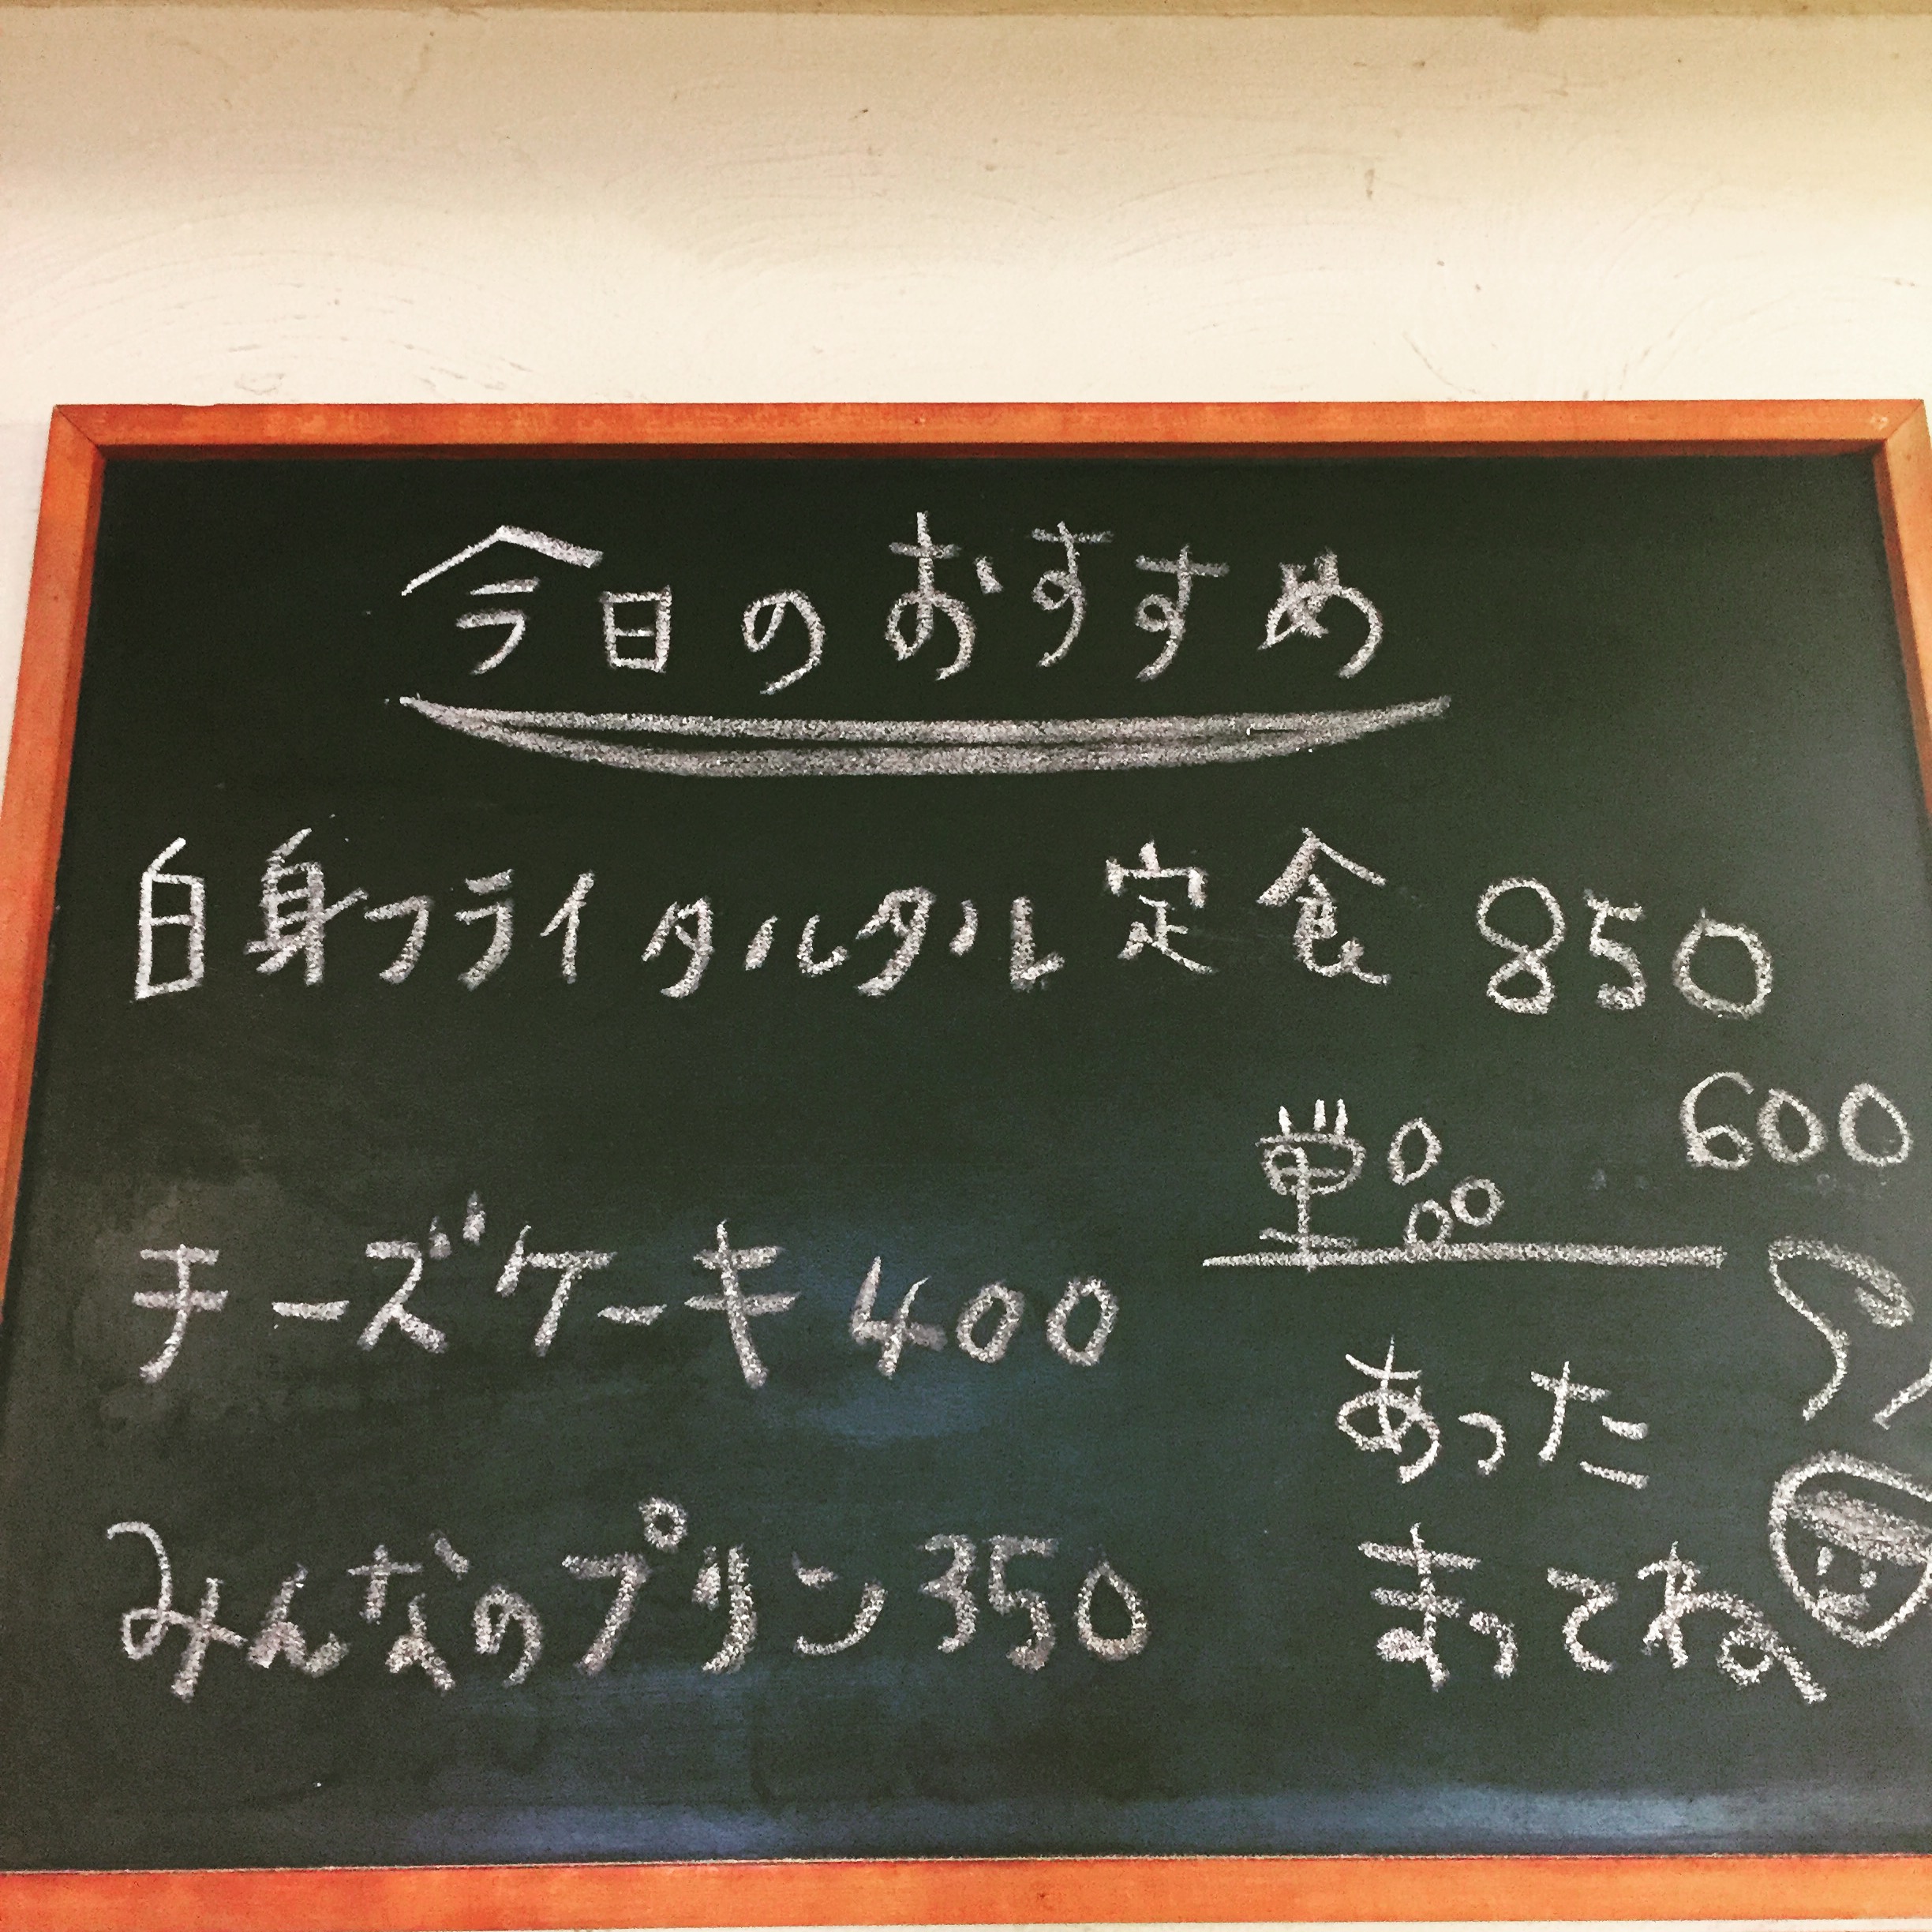 今日のおすすめ
白身フライタルタル定食 850
単品 600
チーズケーキ 400
みんなのプリン 350
あった
まってね